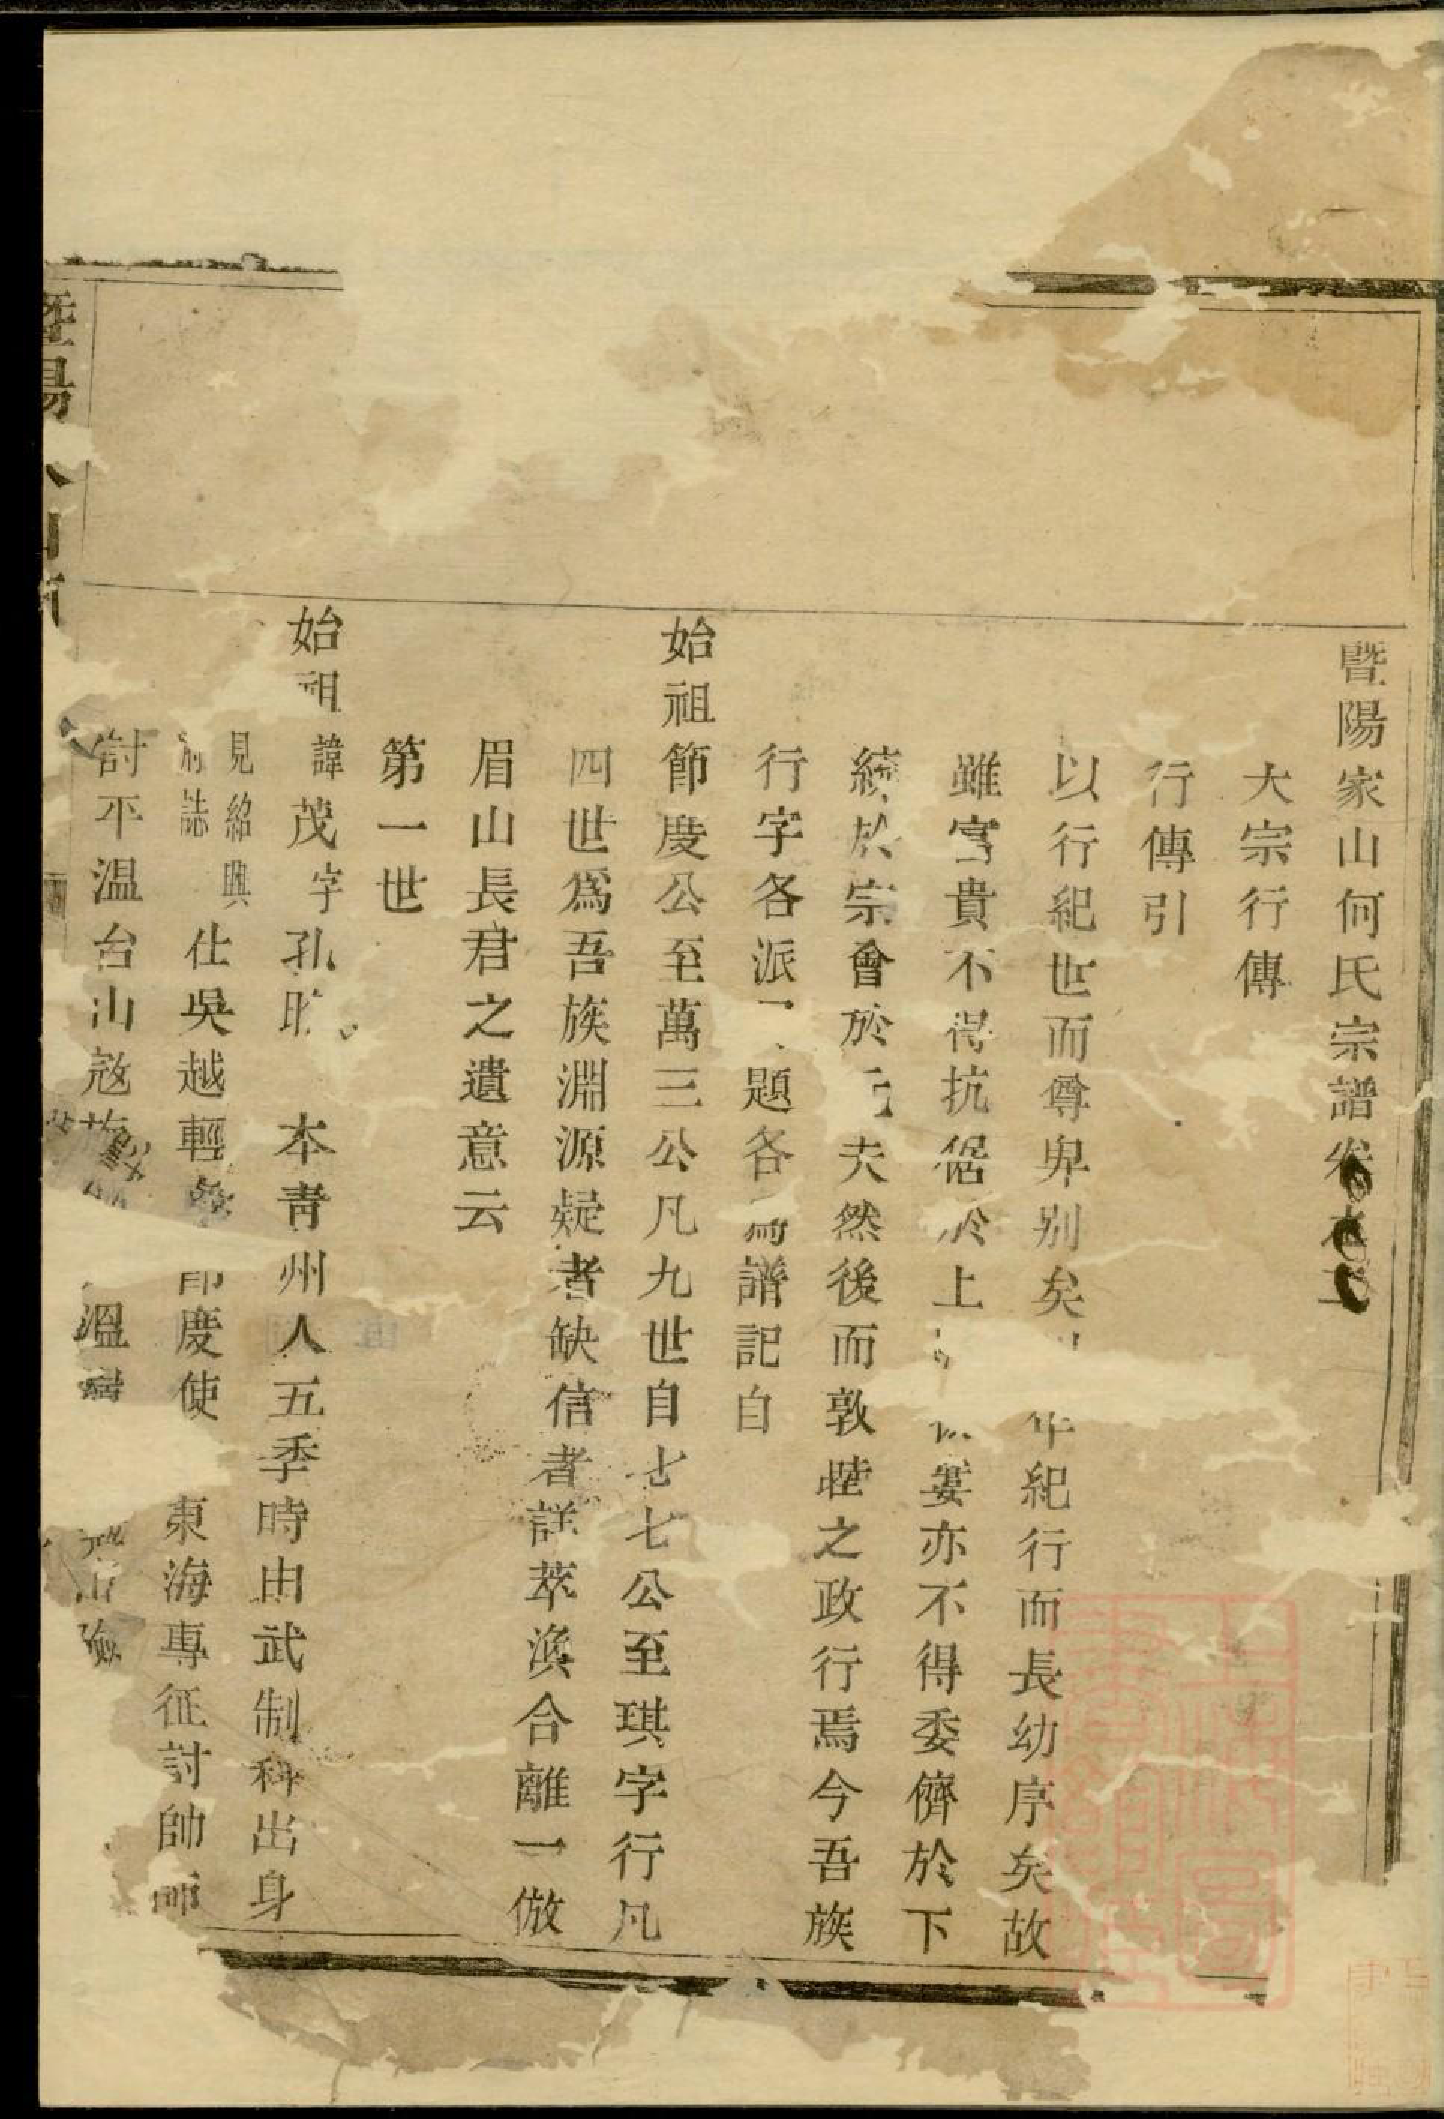 暨陽家山何氏宗譜卷之
大宗行傳
行傳引
以行紀世而尊卑別矣年紀行而長幼序矣故
雖富貴不得抗倨於上妻亦不得委儕於下
統於宗會於夫然後而敦睦之政行焉今吾族
行字各派題各爲譜記自
始祖節度公至萬三公凡九世自七七公至琪字行凡
四世爲吾族淵源疑者缺信者詳萃渙合離一倣
眉山長君之遺意云
第一世
始祖諱茂字孔本青州人五季時由武制科出身
見紹興府誌仕吳越輕節度使東海專征討帥師
討平溫台山寇溫險
暨陽家山何